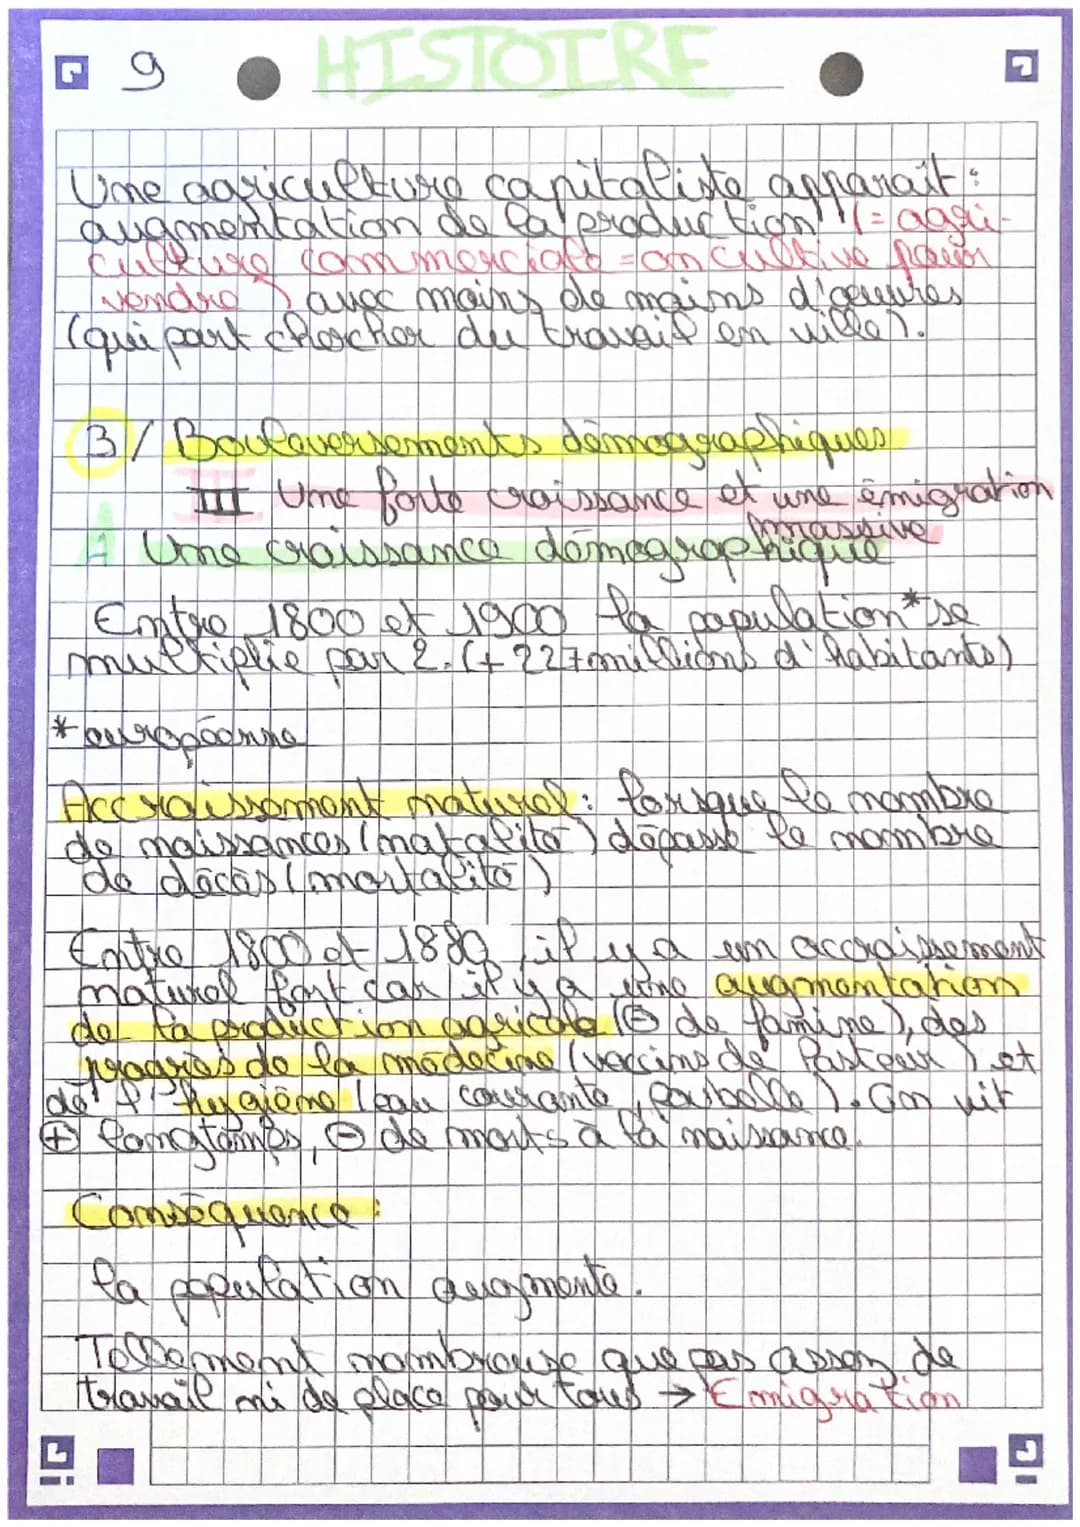 9 HISTOIRE
Une agriculture capitaliste apparaît :
augmentation de la production (= agri-
culture commerciale = on cultive pour
vendre) avec moins de mains d'œuvres
(qui part chercher du travail en ville).
3/ Bouleversements démographiques
III Une forte croissance et une émigration
massive
A Une croissance démographique
Entre 1800 et 1900 la population* se
multiplie par 2. (+ 227 millions d'habitants)
* européenne
Accroissement naturel : lorsque le nombre
de naissances (natalité) dépasse le nombre
de décès (mortalité)
Entre 1800 et 1880, il y a un accroissement
naturel fort car il y a une augmentation
de la production agricole (⊖ de famine), des
progrès de la médecine (vaccins de Pasteur) et
de l'hygiène (eau courante, poubelle). On vit
⊕ longtemps, ⊖ de morts à la naissance.
Conséquence :
la population augmente.
Tellement nombreuse que pas assez de
travail ni de place pour tous → Emigration